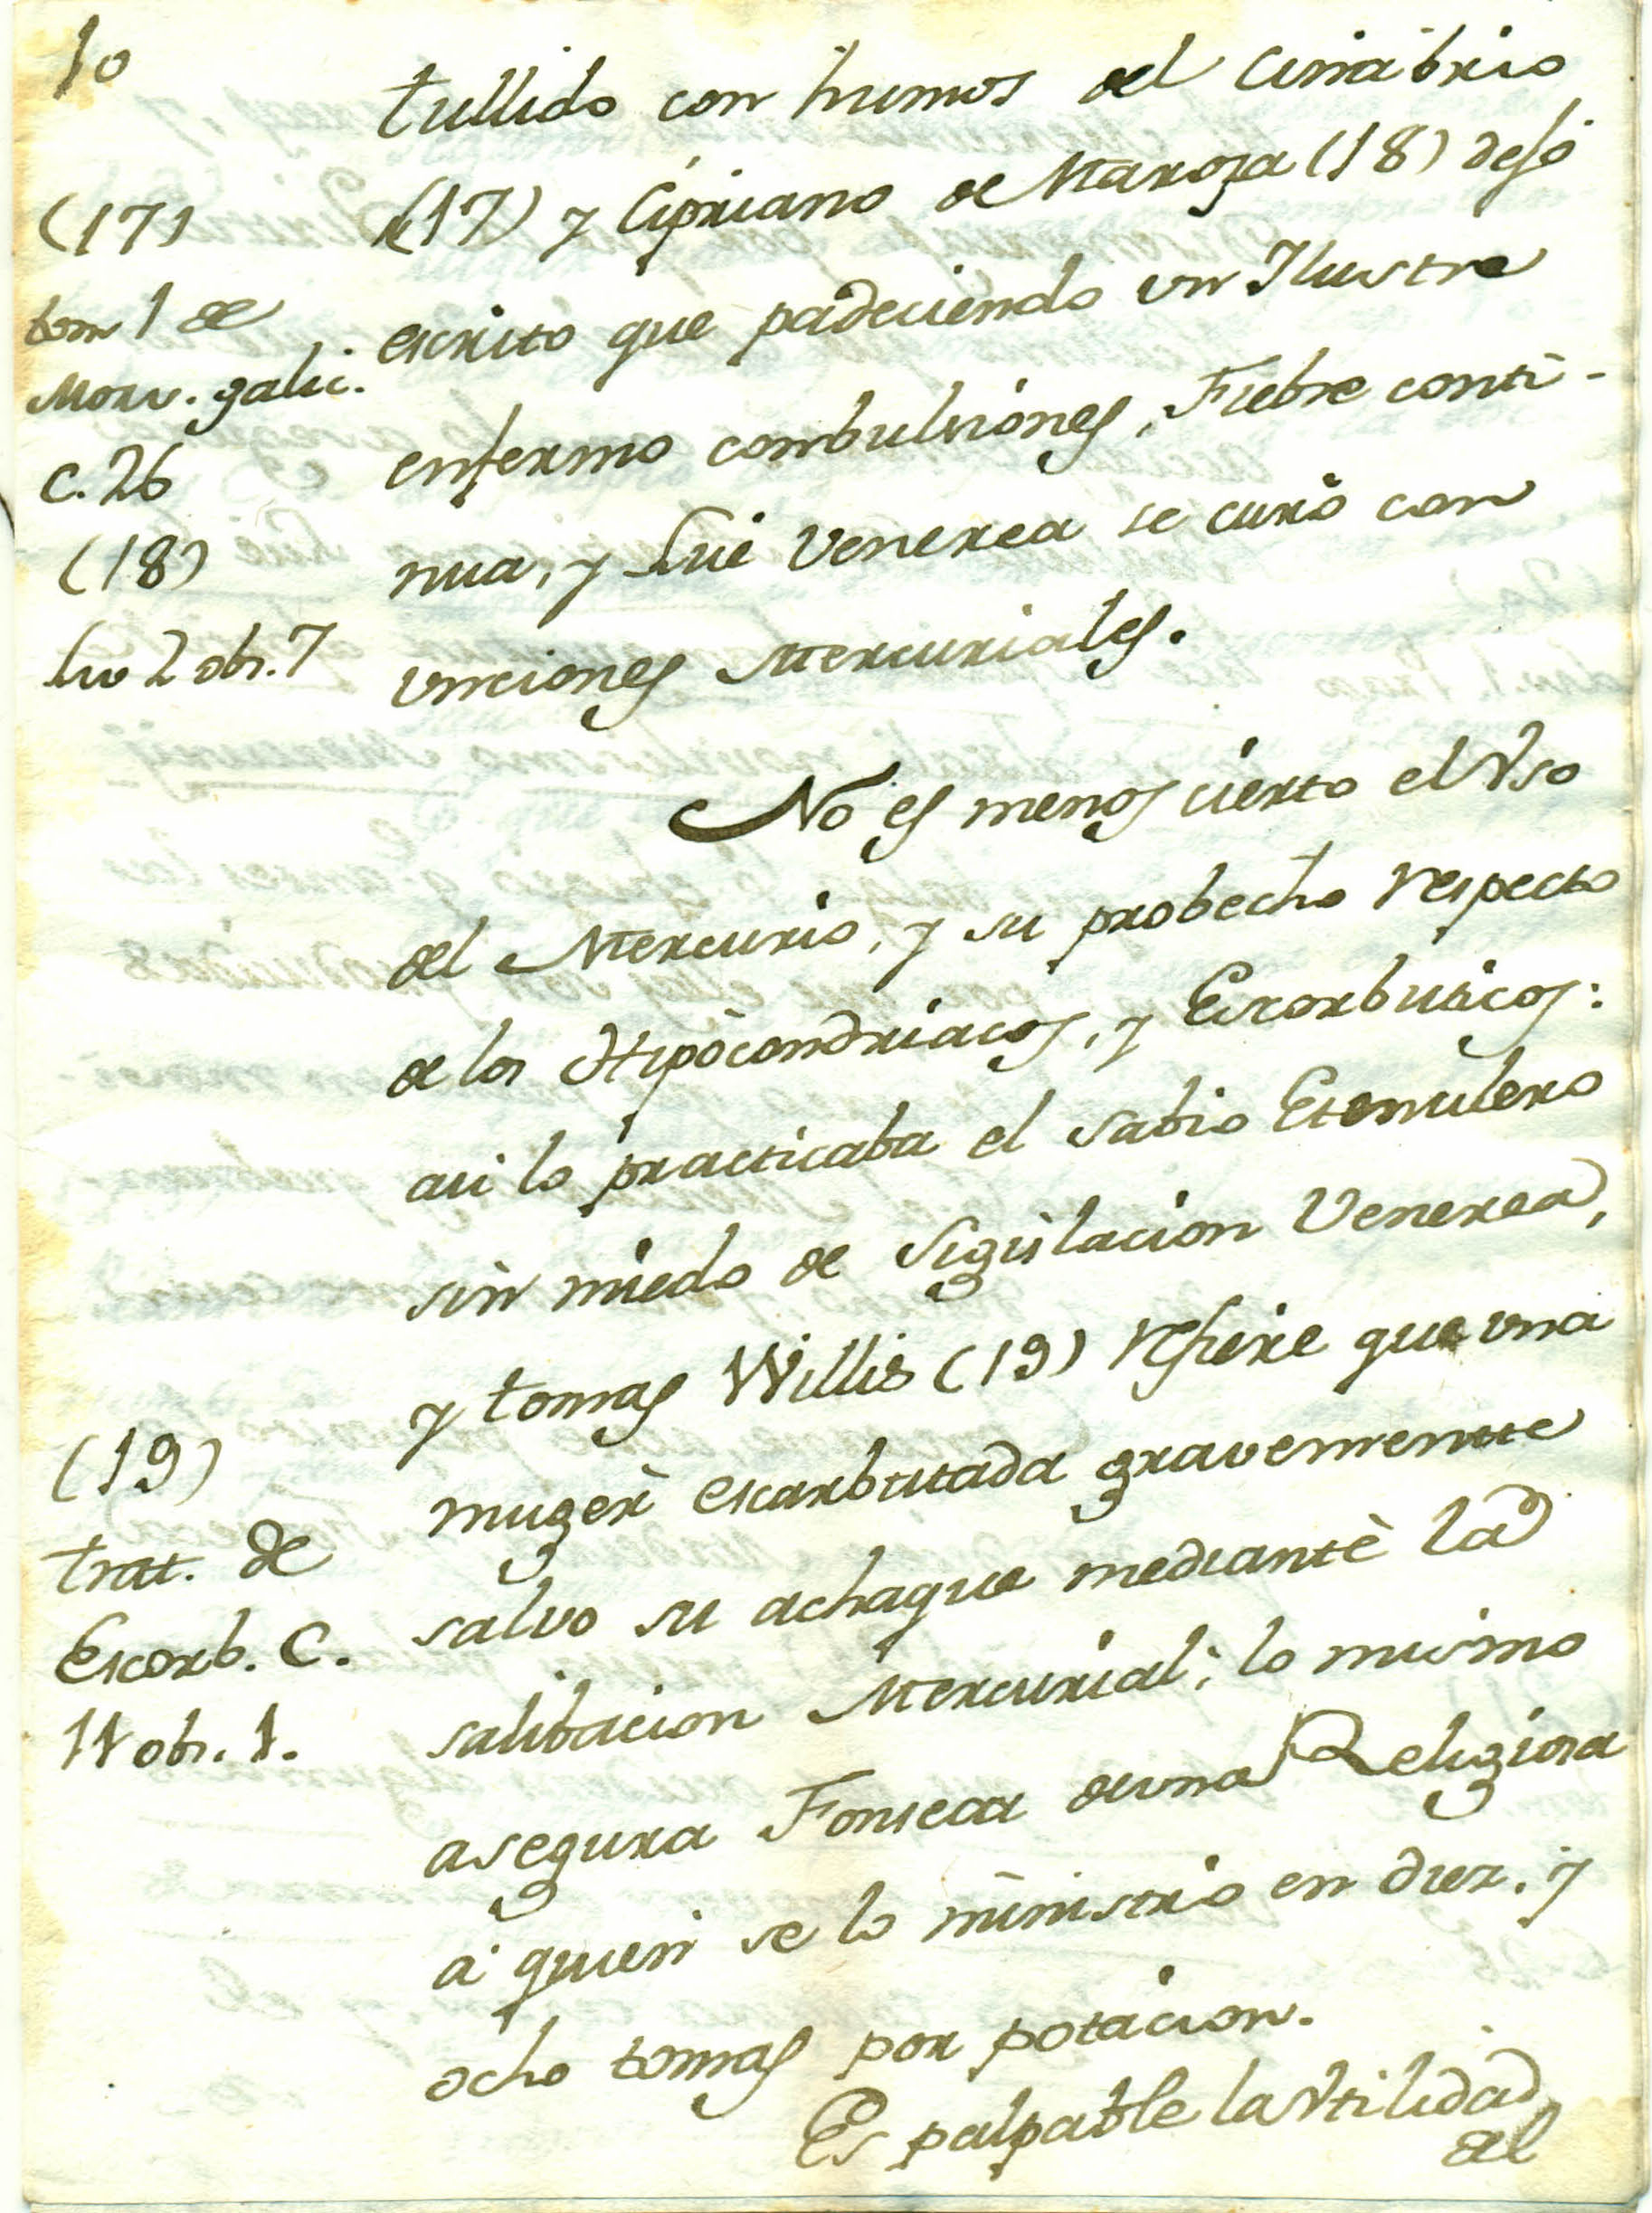 10
tullido con humos del Cinàbrio
(17) y Cipriano de Maroja (18) dejó
escrito que padeciendo un Ilustre
enfermo combulsiones, Fiebre conti-
nua, y Lue Venerea se curò con
unciones Mercuriales.
(17)
tom 1 de
Morv. galic.
c. 26
(18)
liv 2 obs. 7
No es menos cierto el Vso
del Mercurio, y su probecho respecto
de los Hipòcondriacos, y Escorbuticos:
asi lo practicaba el sabio
sin miedo de Sigilacion Venerea,
y tomas Willis (19) refiere que una
mugèr escarbutada gravemente
salvo su achaque mediantè la
salibacion Mercurial; lo mismo
asegura Fonseca de una Religiosa
a quien se lo ministrò en diez, y
ocho tomas por potacion.
(19)
trat. de
Escorb. C.
11 obs. 1.
Es palpable la Vtilidad
del